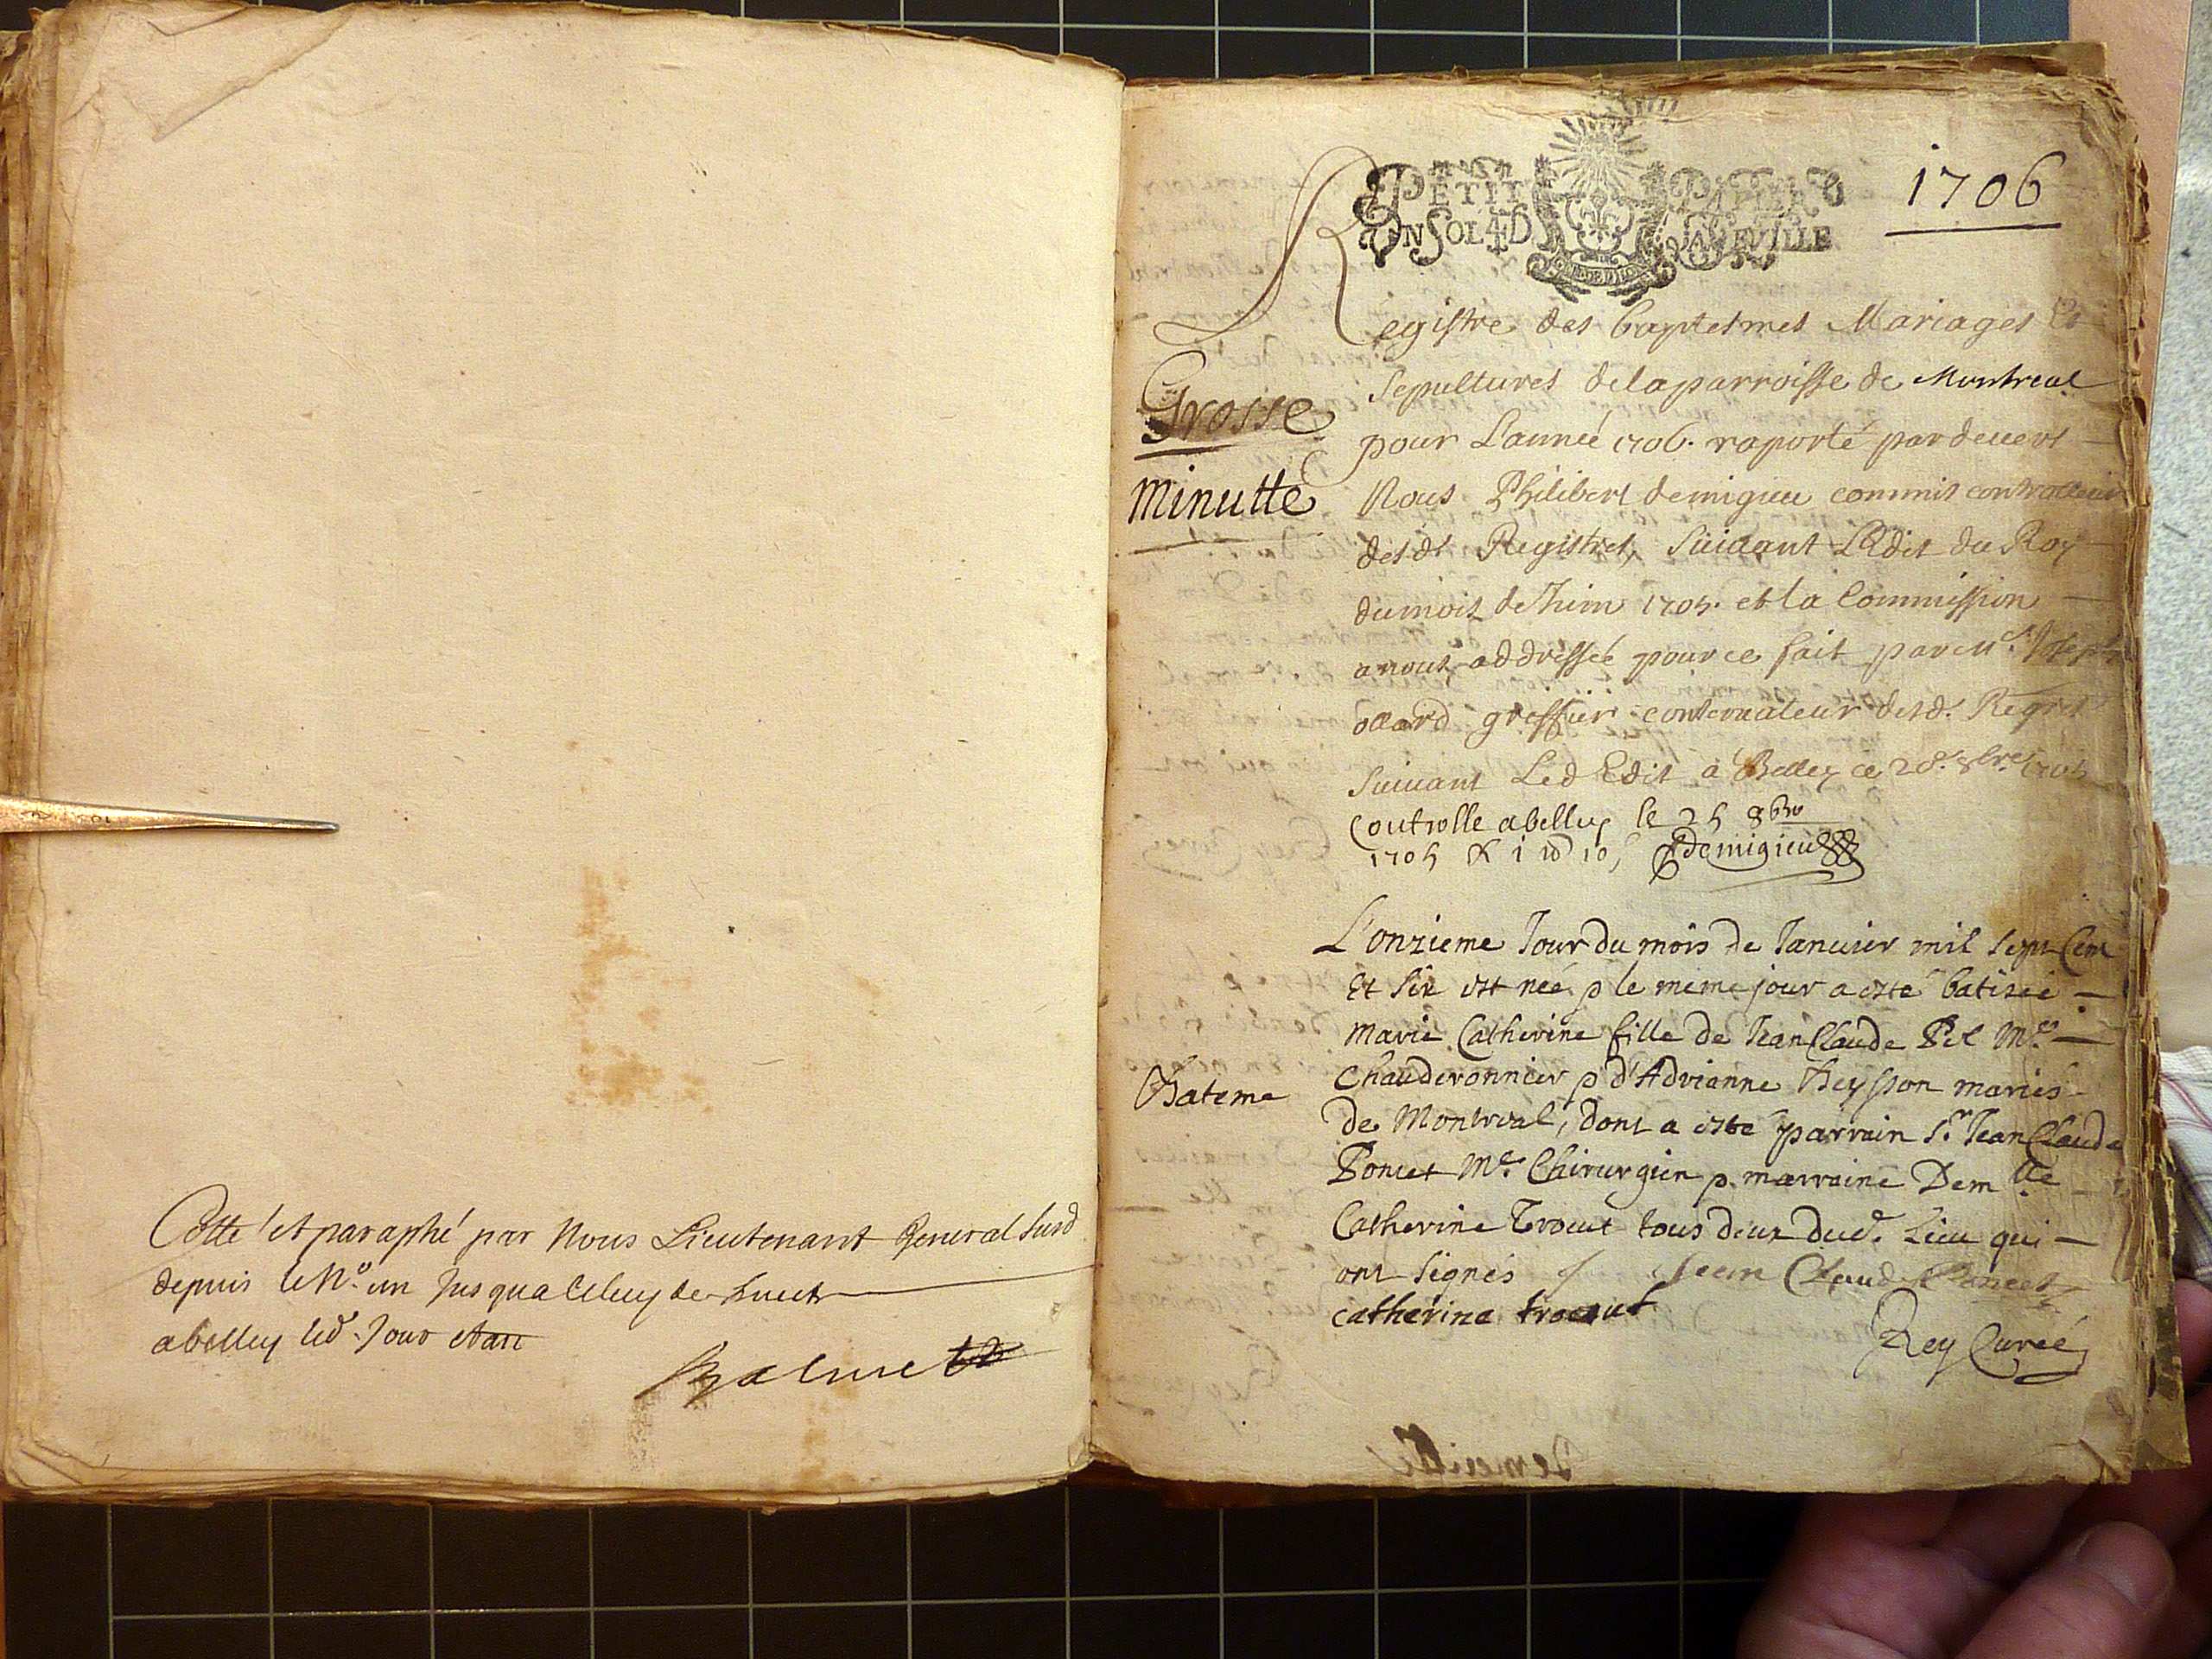 Cotté et paraphé par Nous Lieutenant General susd
depuis le N.º un Jusqua Celuy de huict
abelley led. Jour et an
Balme
1706
PETIT PAPIER
UN SOL 4 D LA FEVILLE
Registre des baptesmes Mariages Et
Sepultures de la parroisse de Montreal
Grosse
pour L'année 1706. raporté pardevers
minutte
Nous Philibert demigieu commis controlleur
desd. Registres, Suivant L'Edit du Roy
du mois de Juin 1705. et la Commission
a nous addressée pour ce fait par Mr. Joseph
greffier conservateur desd. Regres
Suivant Led Edit à Belley ce 20e. 8bre. 1705
Controlle abelley le 25 8bre
1705 R 1 10 Demigieu
L'onzieme Jour du mois de Januier mil Sept Cent
Et Six est née p le meme jour a esté batisée
Marie Catherine fille de Jean Claude Pel Me.
Bateme
Chauderonnier p d'Adrianne Theysson mariés
de Montreal, dont a esté parrain Sr. Jean Claude
Poncet Me. Chirurgien p. marraine Demlle
Catherine Trocut tous deux dud. Lieu qui
ont Signés Jean Claude Poncet
catherine trocut
Rey Curé